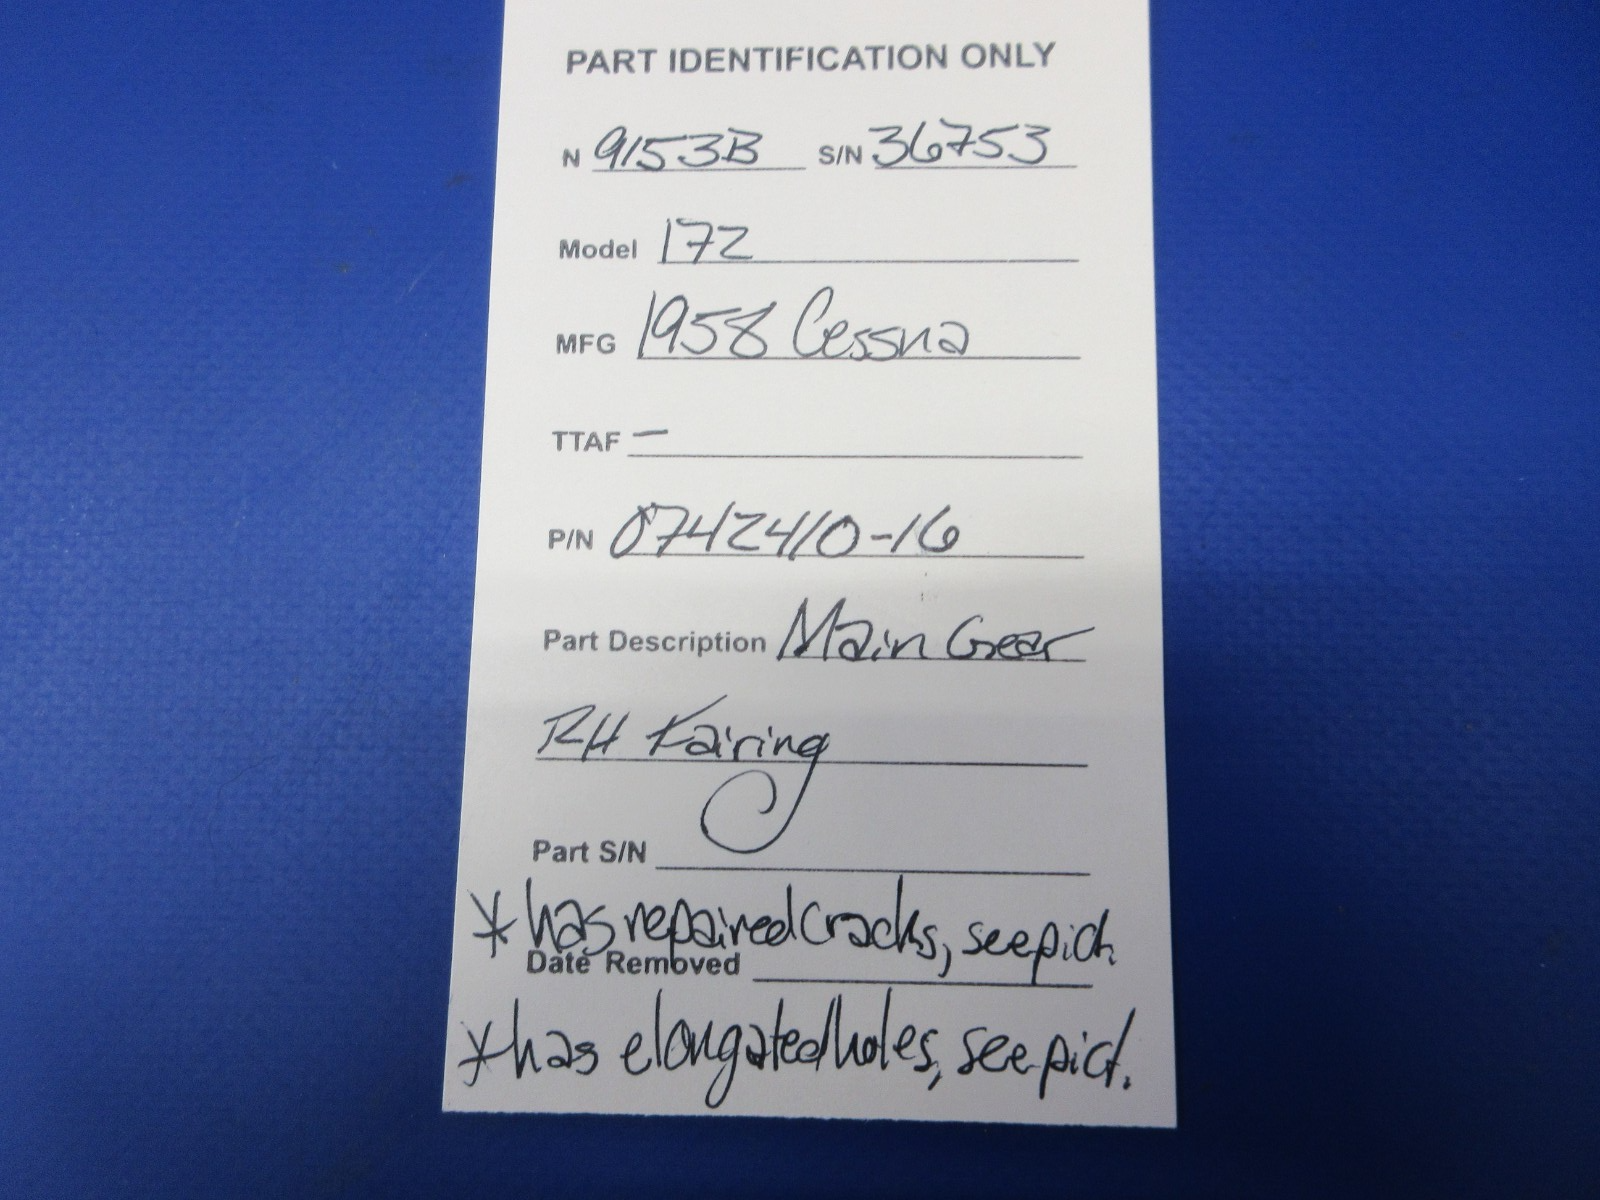 PART IDENTIFICATION ONLY
N 9153B S/N 36753
Model 172
MFG 1958 Cessna
TTAF —
P/N 0742410-16
Part Description Main Gear
RH Fairing
Part S/N
* has repaired cracks, see pict.
Date Removed
* has elongated holes, see pict.